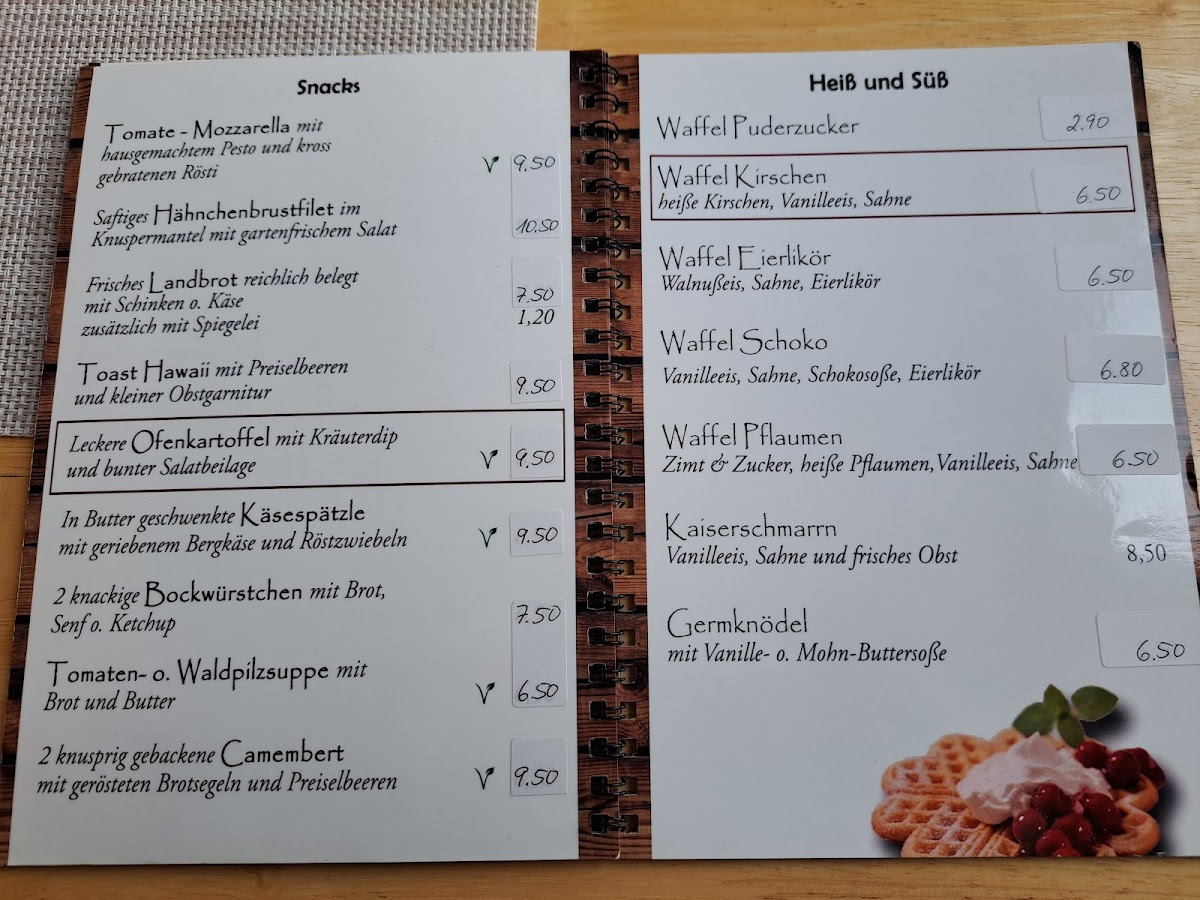 Snacks
Tomate - Mozzarella mit
hausgemachtem Pesto und kross
gebratenen Rösti
V 9.50
Saftiges Hähnchenbrustfilet im
Knuspermantel mit gartenfrischem Salat 10.50
Frisches Landbrot reichlich belegt
mit Schinken o. Käse 7.50
zusätzlich mit Spiegelei 1,20
Toast Hawaii mit Preiselbeeren
und kleiner Obstgarnitur 9.50
Leckere Ofenkartoffel mit Kräuterdip
und bunter Salatbeilage V 9.50
In Butter geschwenkte Käsespätzle
mit geriebenem Bergkäse und Röstzwiebeln V 9.50
2 knackige Bockwürstchen mit Brot,
Senf o. Ketchup 7.50
Tomaten- o. Waldpilzsuppe mit
Brot und Butter V 6.50
2 knusprig gebackene Camembert
mit gerösteten Brotsegeln und Preiselbeeren V 9.50
Heiß und Süß
Waffel Puderzucker 2.90
Waffel Kirschen
heiße Kirschen, Vanilleeis, Sahne 6.50
Waffel Eierlikör
Walnußeis, Sahne, Eierlikör 6.50
Waffel Schoko
Vanilleeis, Sahne, Schokosoße, Eierlikör 6.80
Waffel Pflaumen
Zimt & Zucker, heiße Pflaumen, Vanilleeis, Sahne 6.50
Kaiserschmarrn
Vanilleeis, Sahne und frisches Obst 8,50
Germknödel
mit Vanille- o. Mohn-Buttersoße 6.50